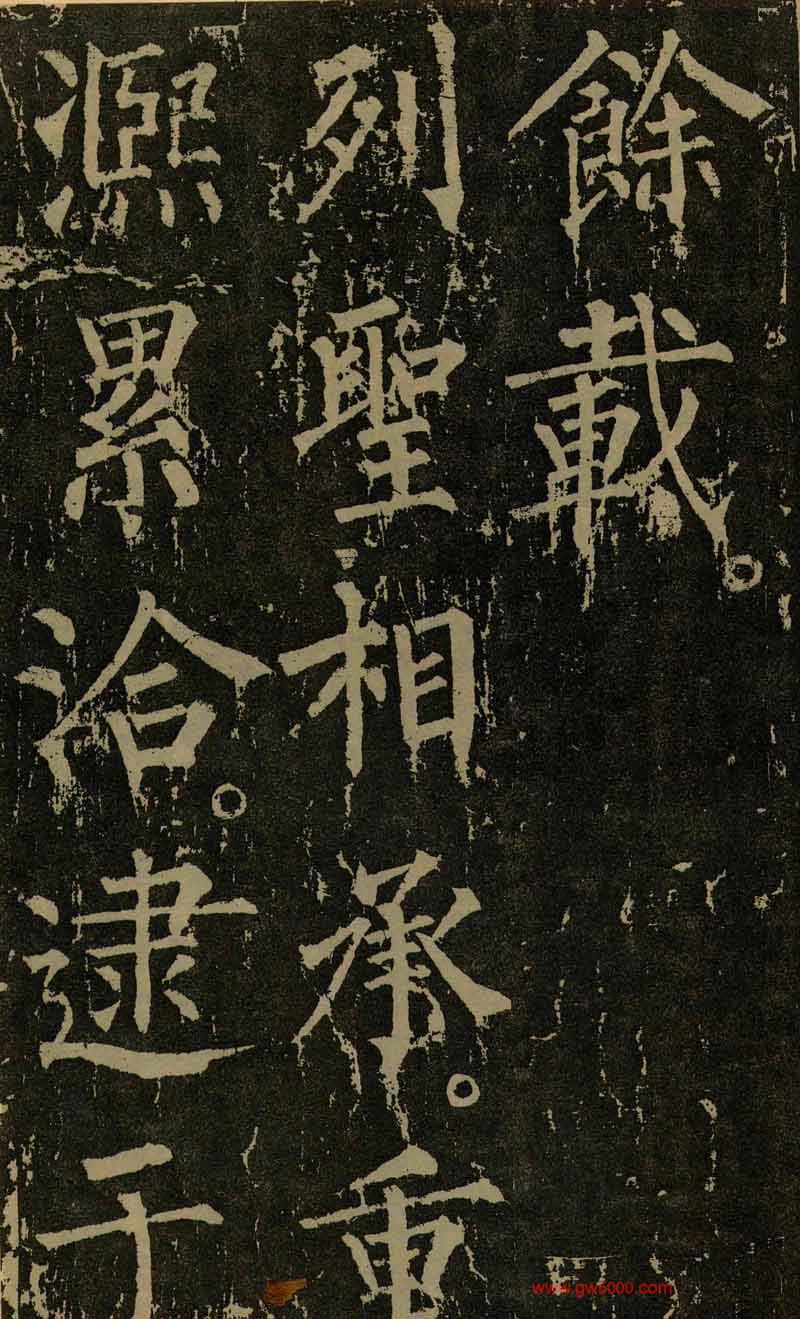 餘載。
列聖相承。重
熈累洽。逮于
www.gw5000.com